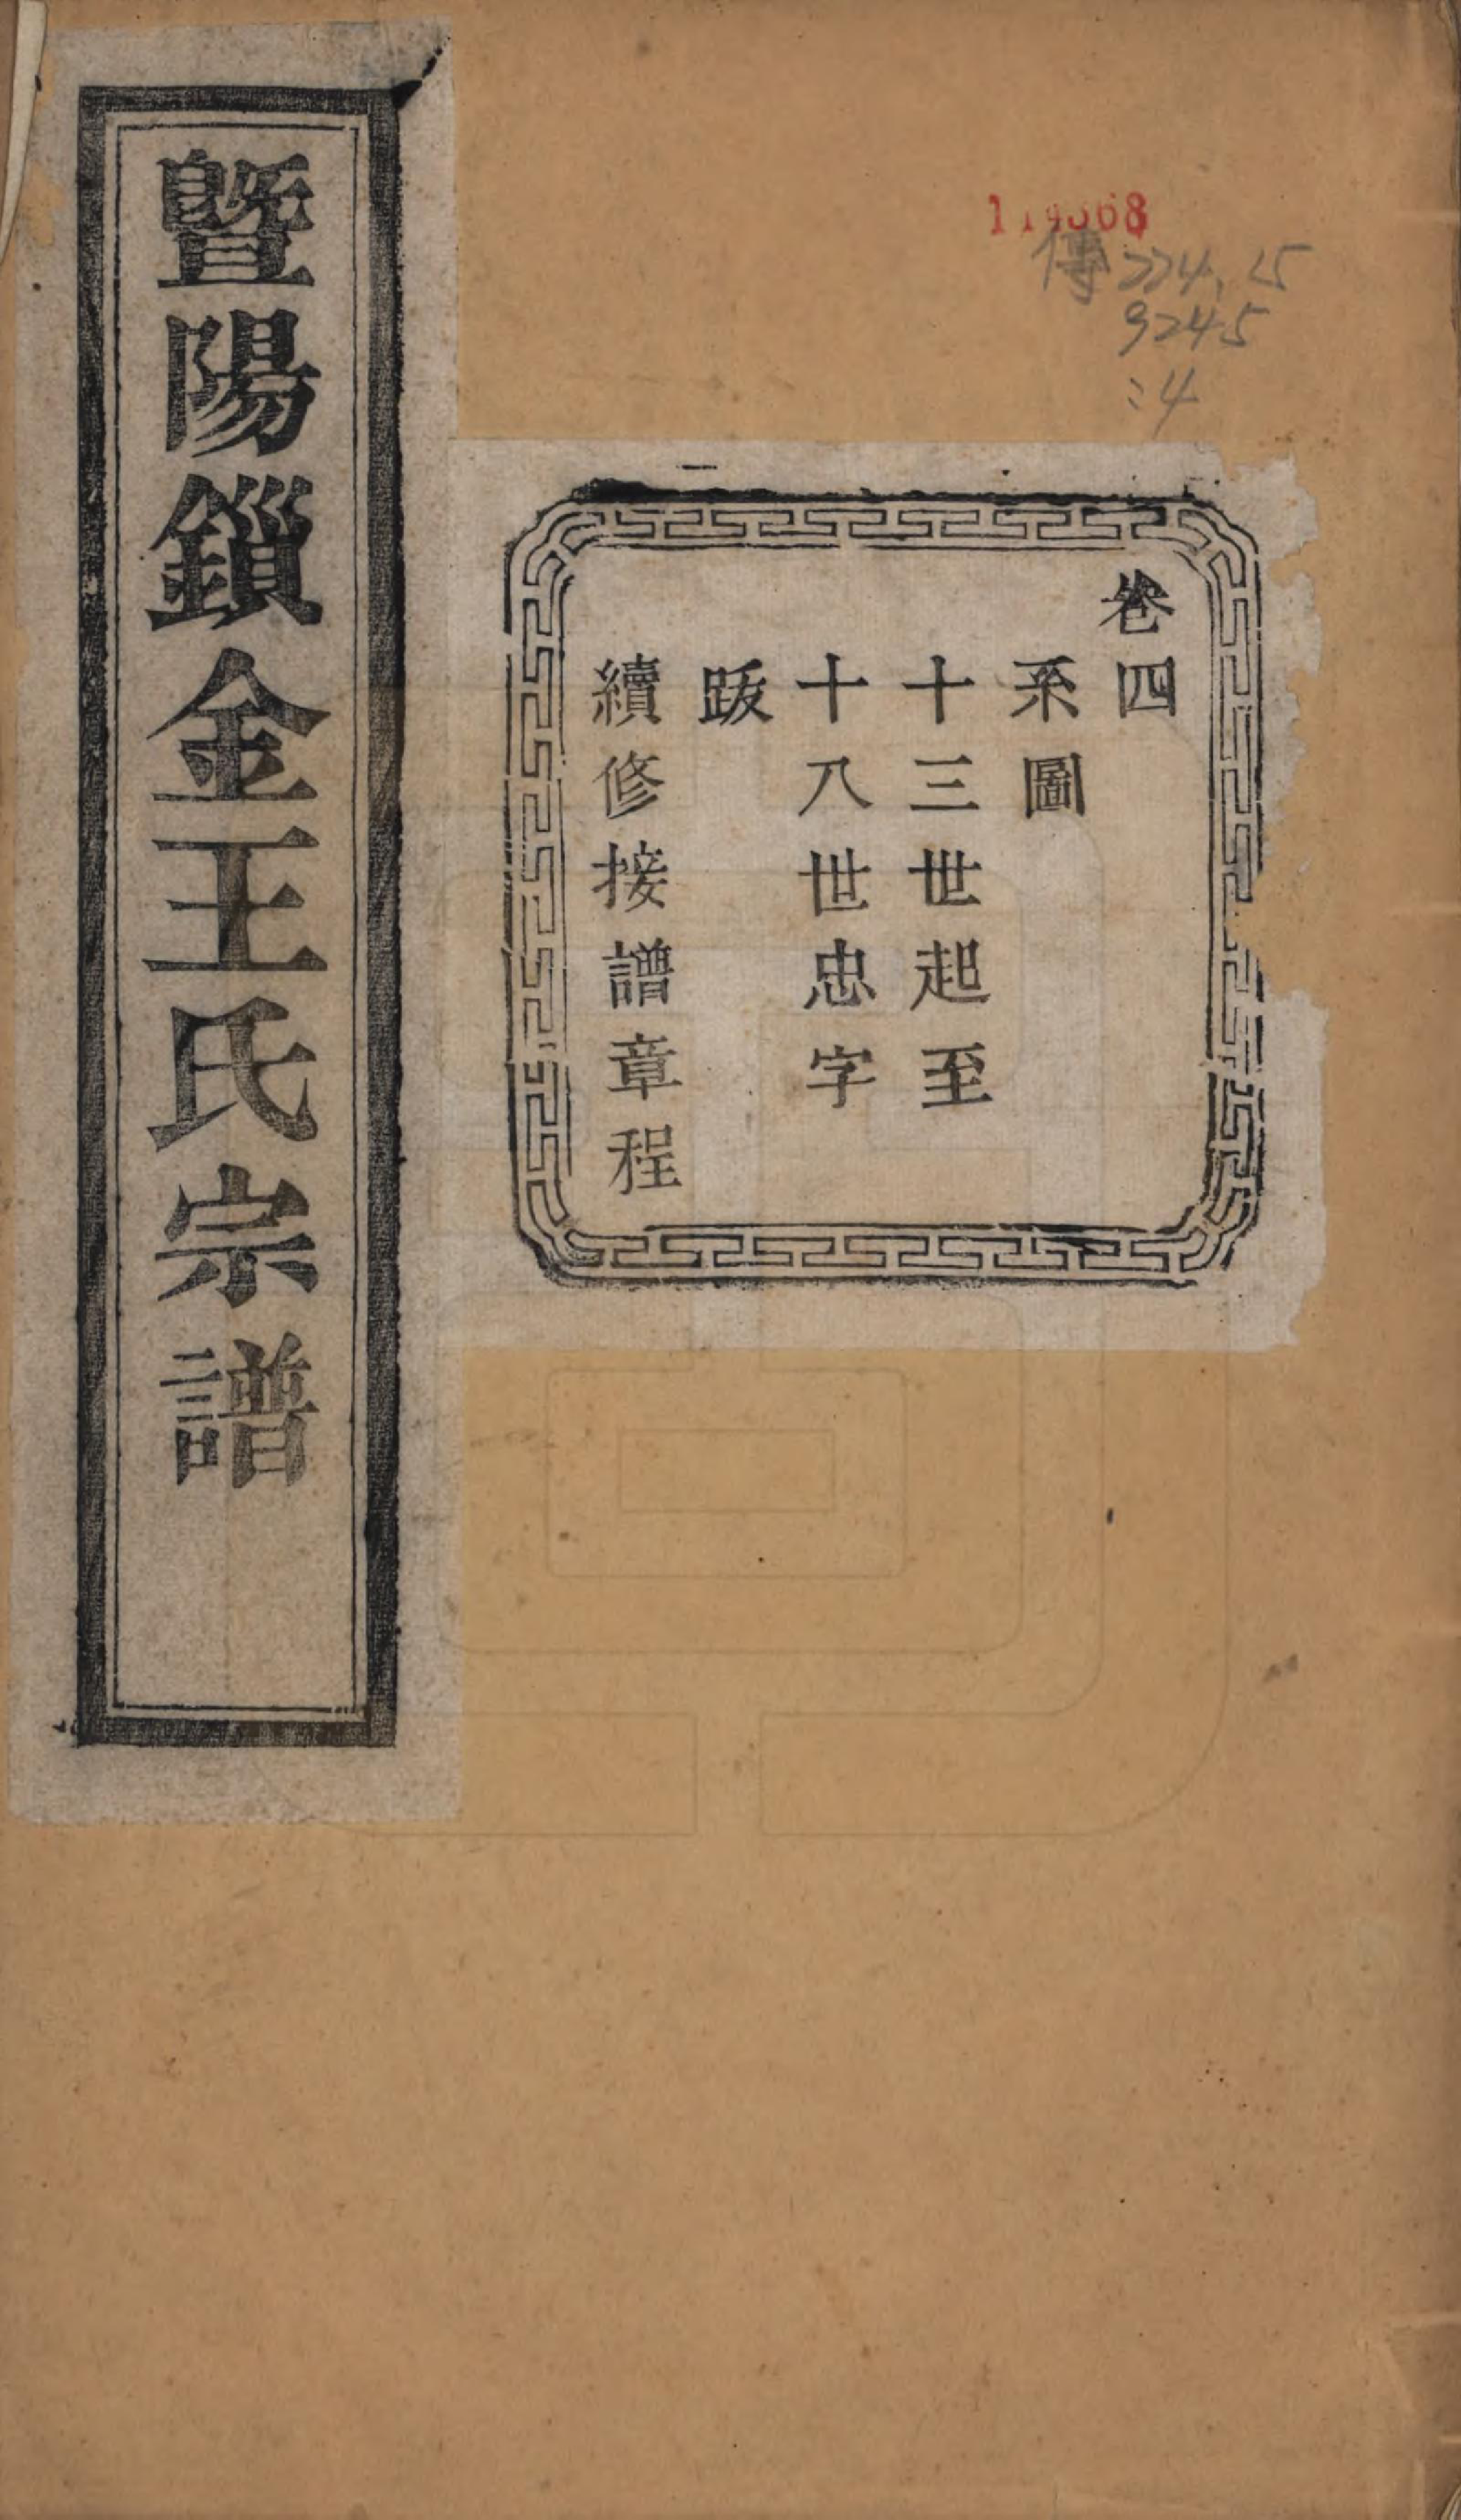 暨陽鎻金王氏宗譜
卷四
系圖
十三世起至
十八世忠字
跋
續修接譜章程
傳 224.15
9245
:4